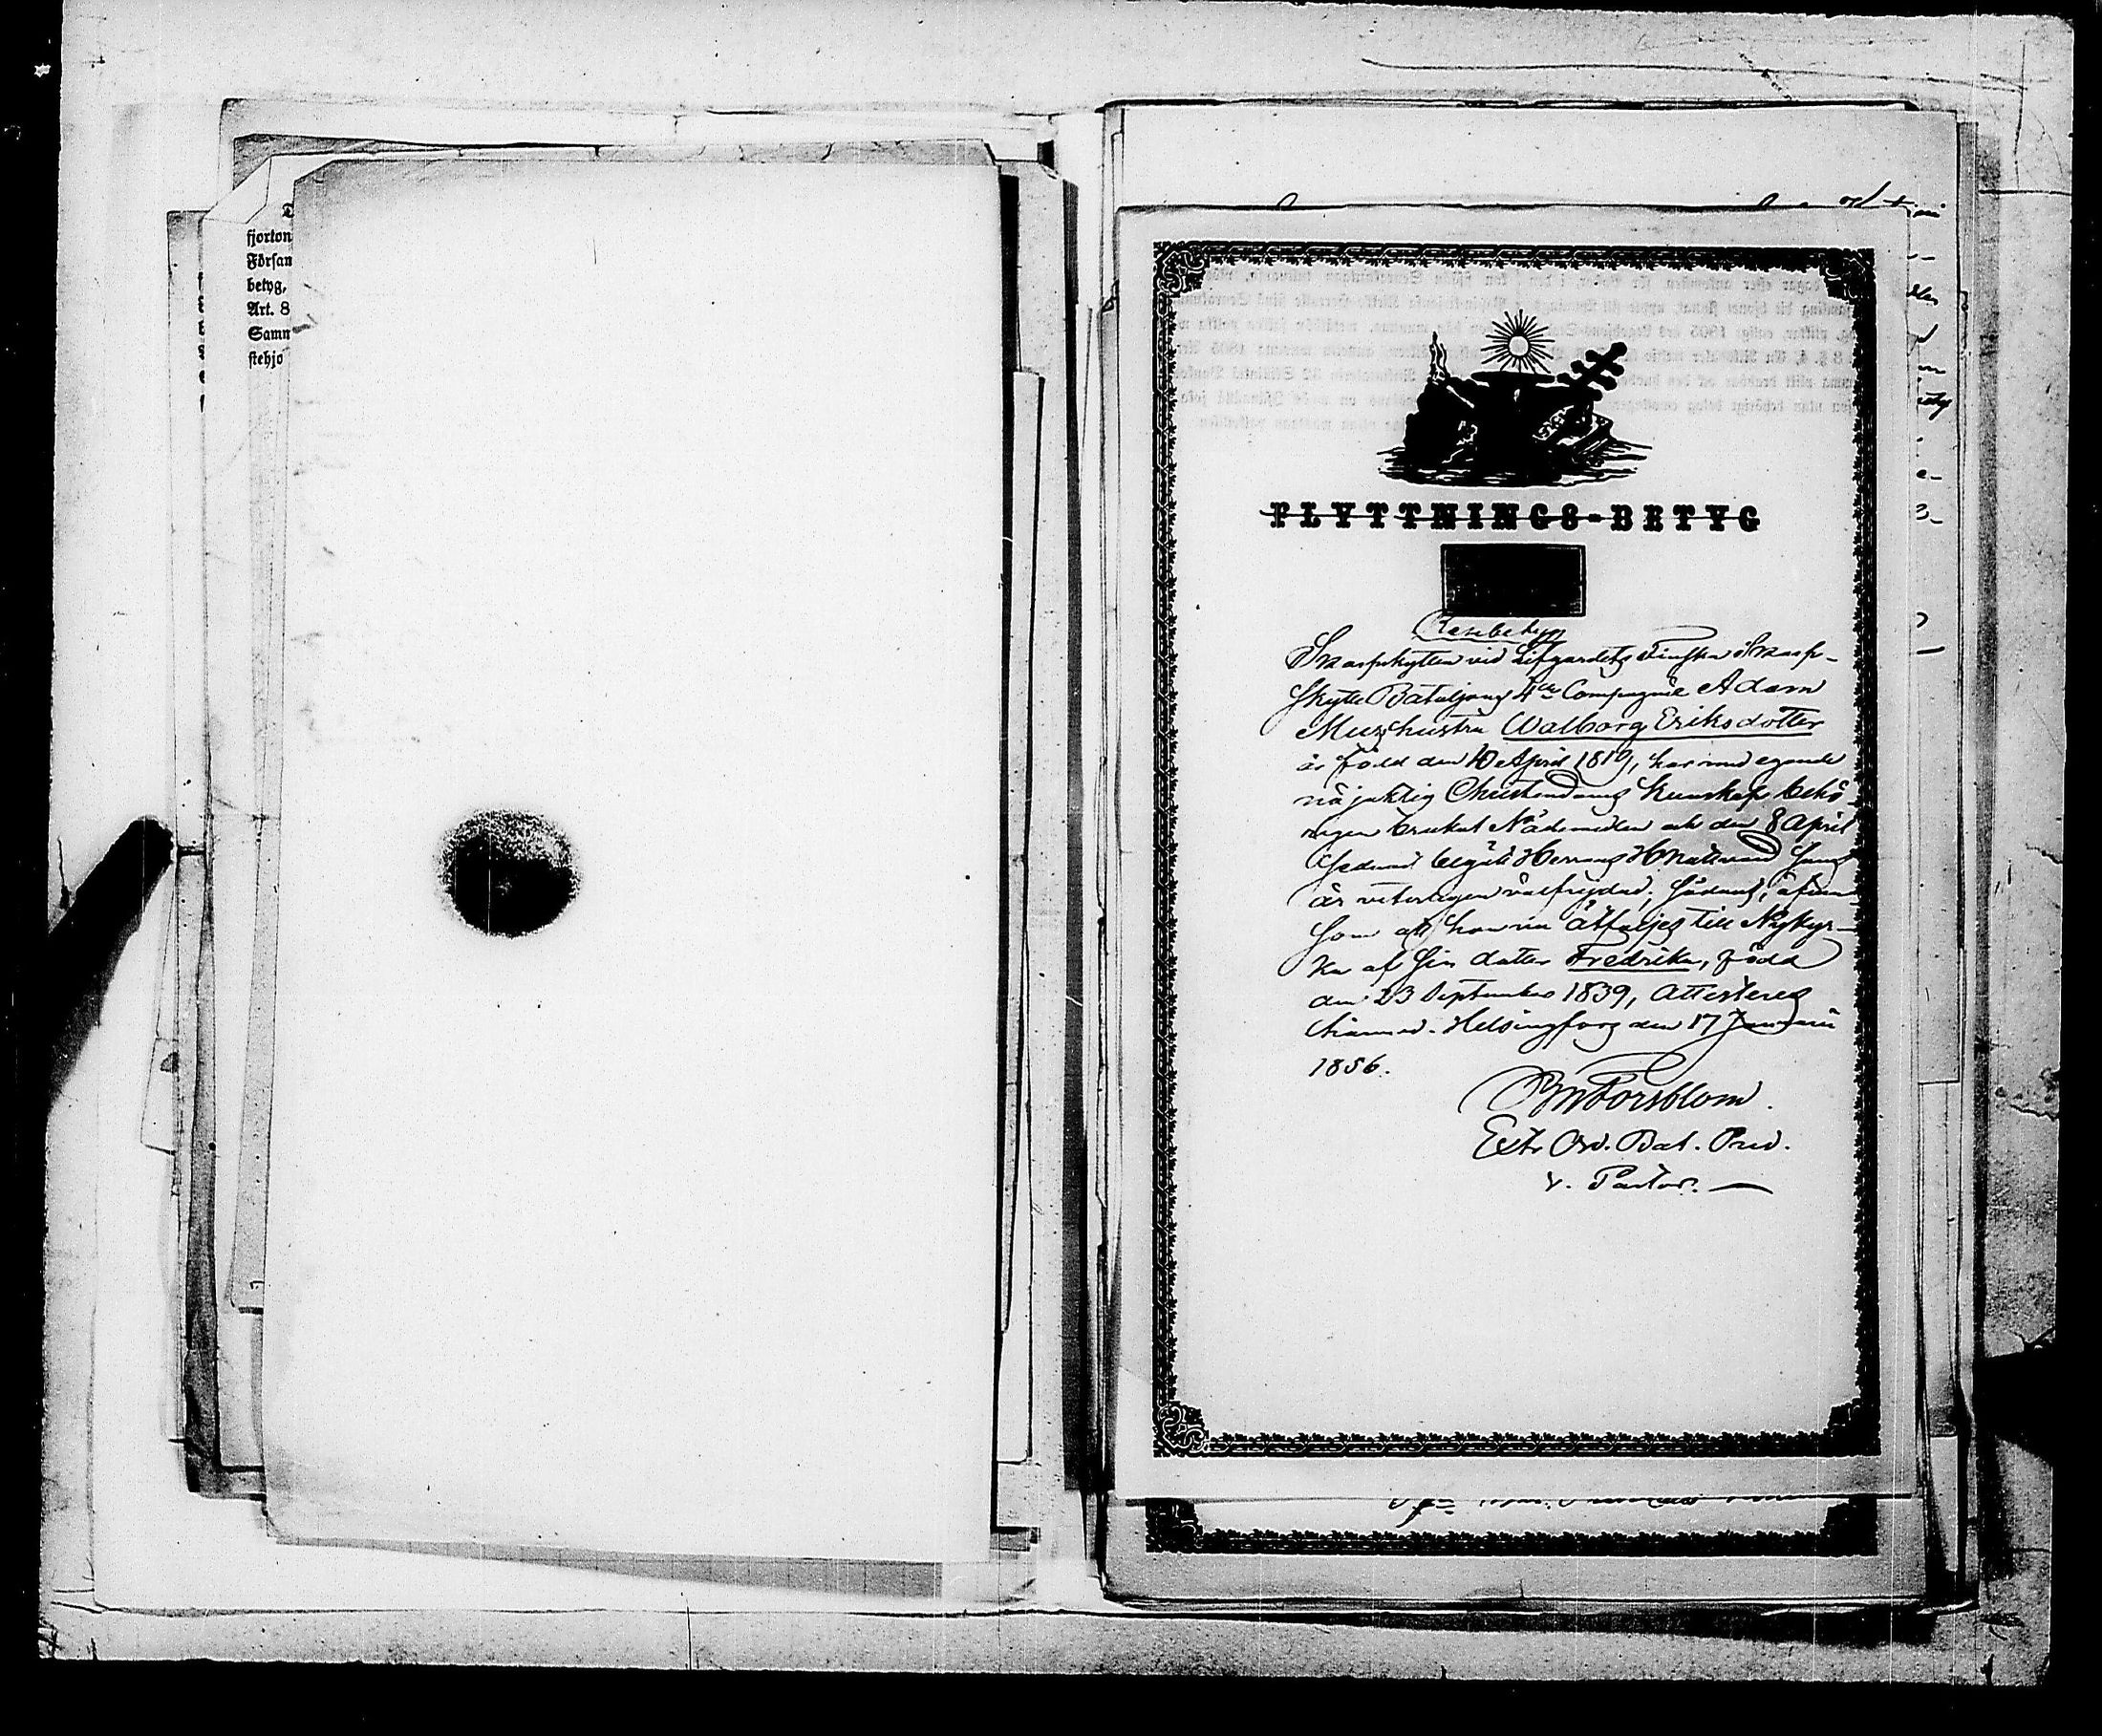 fjorton
Försam
betyg,
Art. 8
Samm
stehjo
FLYTTNINGS-BETYG
Resebetyg
Skarpskytten vid Lifgardets Finska Skarp-
skytte Bataljons 4de Compagnie Adam
Mus hustru Walborg Eriksdotter
är född den 10 April 1819, har med egande
nöjaktig Christendoms kunskap behö-
rigen brukat Nådemedlen och den 8 April
sednast begått Herrans H Nattvard samt
är veterligen välfrejdad; sådant, äfven
som att hon nu åtföljes till Nykyr-
ka af sin dotter Fredrika, född
den 23 September 1839, attesteras
härmed. Helsingfors den 17 Januarii
1856.
Forsblom.
Extr Ord. Bat. Pred.
v. Pastor.